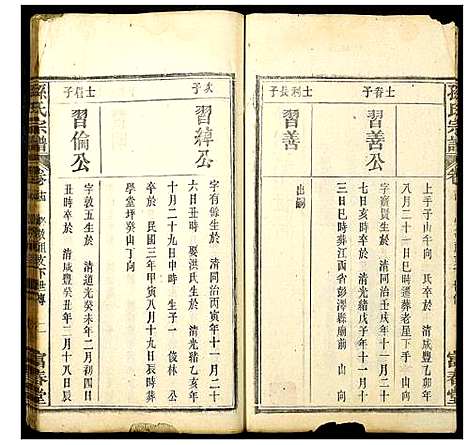 孫氏宗譜
卷
上手子山午向 氏 清咸豐乙卯年
八月二十一日巳時遷葬老屋下手山
士睿子
習善
字寶賢生於 清同治壬戌年十一月
七日亥時卒於 清光緒戊子年十一月十
三日巳時葬江西省彭澤縣廟前 山向
士利長子
出嗣
富春堂
次子
習綽公
字有餘生於 清同治丙寅年十一月二十
六日丑時 娶洪氏生於 清光緒乙亥年
十月二十九日申時 生子一 俊林 公
卒於 民國三年甲寅八月十九日辰時葬
學堂坪癸山丁向
士信子
習倫公
字敦五生於 清道光癸未年二月初四日
丑時卒於 清咸豐癸丑年二月十八日辰
孫氏宗譜
卷
下世傳
富春堂